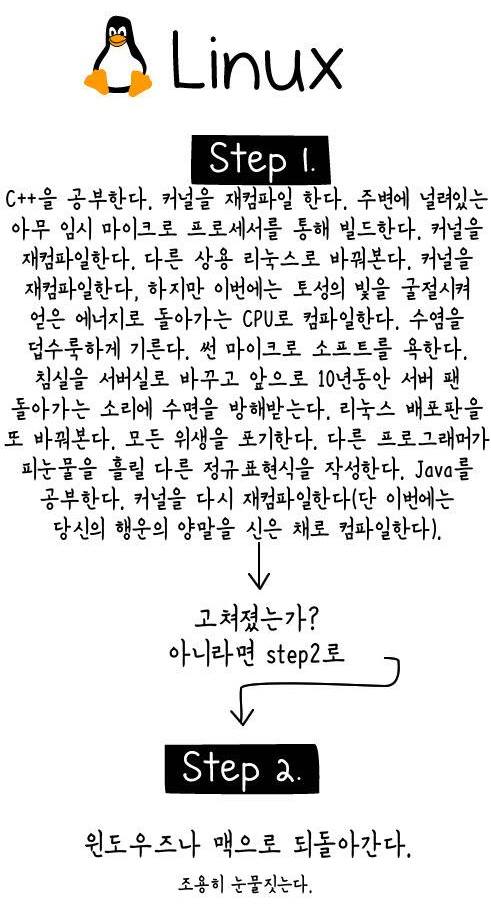 Linux
Step 1.
C++을 공부한다. 커널을 재컴파일 한다. 주변에 널려있는
아무 임시 마이크로 프로세서를 통해 빌드한다. 커널을
재컴파일한다. 다른 상용 리눅스로 바꿔본다. 커널을
재컴파일한다, 하지만 이번에는 토성의 빛을 굴절시켜
얻은 에너지로 돌아가는 CPU로 컴파일한다. 수염을
덥수룩하게 기른다. 썬 마이크로 소프트를 욕한다.
침실을 서버실로 바꾸고 앞으로 10년동안 서버 팬
돌아가는 소리에 수면을 방해받는다. 리눅스 배포판을
또 바꿔본다. 모든 위생을 포기한다. 다른 프로그래머가
피눈물을 흘릴 다른 정규표현식을 작성한다. Java를
공부한다. 커널을 다시 재컴파일한다(단 이번에는
당신의 행운의 양말을 신은 채로 컴파일한다).
고쳐졌는가?
아니라면 step2로
Step 2.
윈도우즈나 맥으로 되돌아간다.
조용히 눈물짓는다.